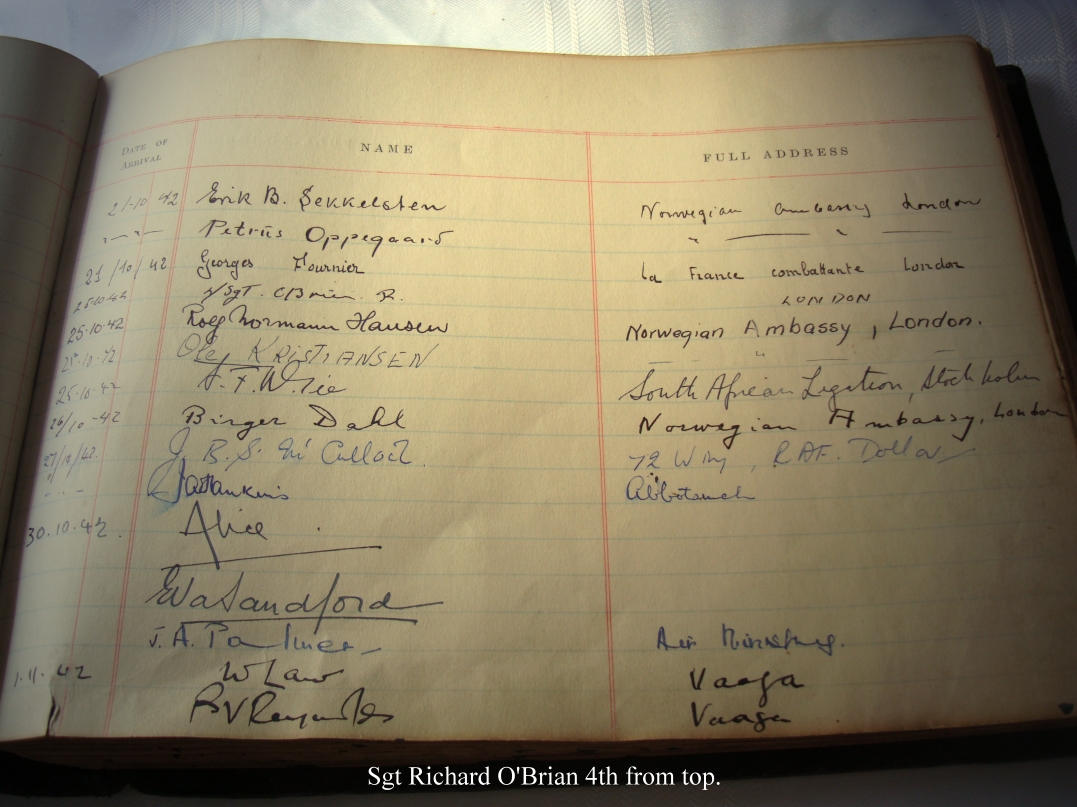 DATE OF ARRIVAL NAME FULL ADDRESS
21-10 42 Erik B. Sekkelsten Norwegian Embassy London
" Petrus Oppegaard " "
21/10/42 Georges Fournier La France combattante London
25.10.42 Sgt. O'Brien R. LONDON
25.10.42 Rolf Normann Hansen Norwegian Embassy, London.
25.10.42 Olaf KRISTIANSEN "
25.10.42 South African Legation, Stockholm
26/10-42 Birger Dahl Norwegian Ambassy, London
27/10/42. J. B. S. Mc Culloch. 72 Wing, RAF. Dollar
" Hankins Abbotsinch
30.10.42. Alice
Sandford
J. A. Palmer Air Ministry.
1.11.42 W Law Vaaga
R V Reynolds Vaaga
Sgt Richard O'Brian 4th from top.